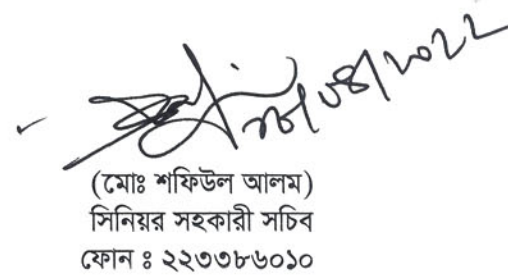 ০৪/২০২২
(মোঃ শফিউল আলম)
সিনিয়র সহকারী সচিব
ফোন ঃ ২২৩৩৮৬০১০